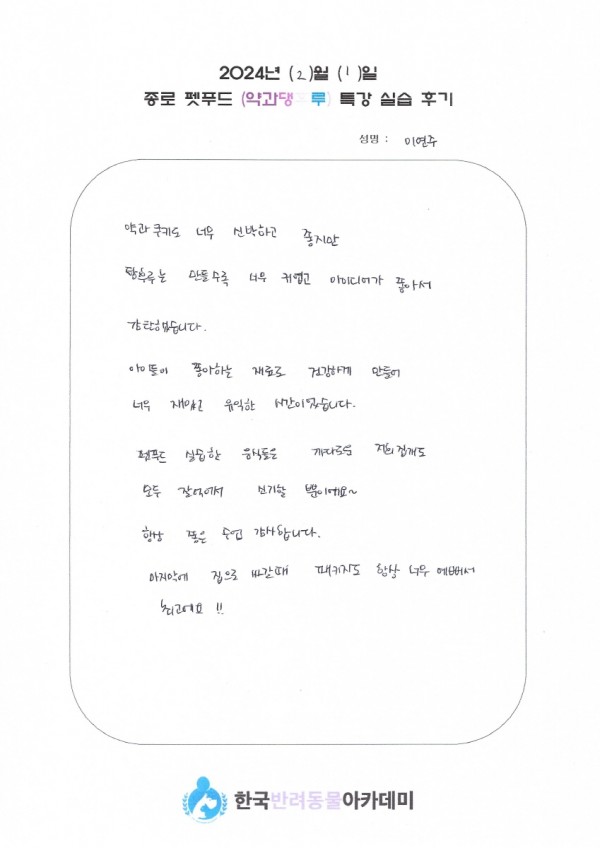 2024년 (2)월 (1)일
종로 펫푸드 (약과댕 루) 특강 실습 후기
성명 : 이연주
약과 쿠키도 너무 신박하고 좋지만
탕후루는 만들수록 너무 귀엽고 아이디어가 좋아서
감탄했습니다.
아이들이 좋아하는 재료로 건강하게 만들어
너무 재밌고 유익한 시간이었습니다.
펫푸드 실습한 음식들은 까다로운 저희집개도
모두 잘먹어서 신기할 뿐이에요~
항상 좋은 수업 감사합니다.
마지막에 집으로 싸갈때 패키지도 항상 너무 예뻐서
최고에요 !!
한국반려동물아카데미